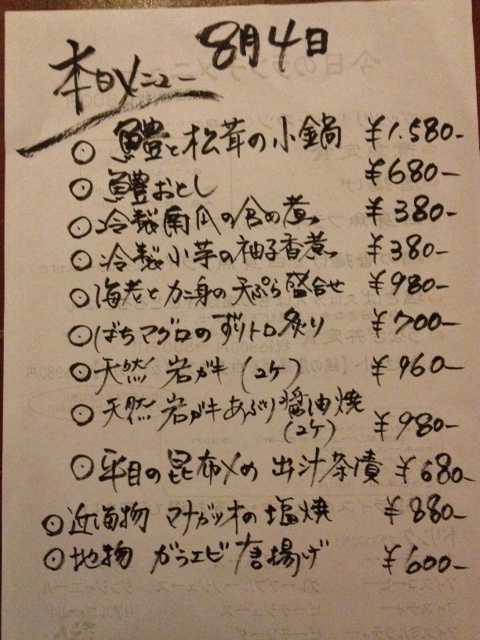 8月4日
本日メニュー
○ 鱧と松茸の小鍋 ¥1.580-
○ 鱧おとし ¥680-
○ 冷製南瓜の含め煮 ¥380-
○ 冷製小芋の柚子香煮 ¥380-
○ 海老とカニ身の天ぷら盛合せ ¥980-
○ ばちマグロのずりトロ炙り ¥700-
○ 天然 岩ガキ (2ケ) ¥960-
○ 天然 岩ガキあぶり醤油焼
(2ケ) ¥980-
○ 平目の昆布〆め 出汁茶漬 ¥680-
○ 近海物 マナガツオの塩焼 ¥880-
○ 地物 ガラエビ唐揚げ ¥600-